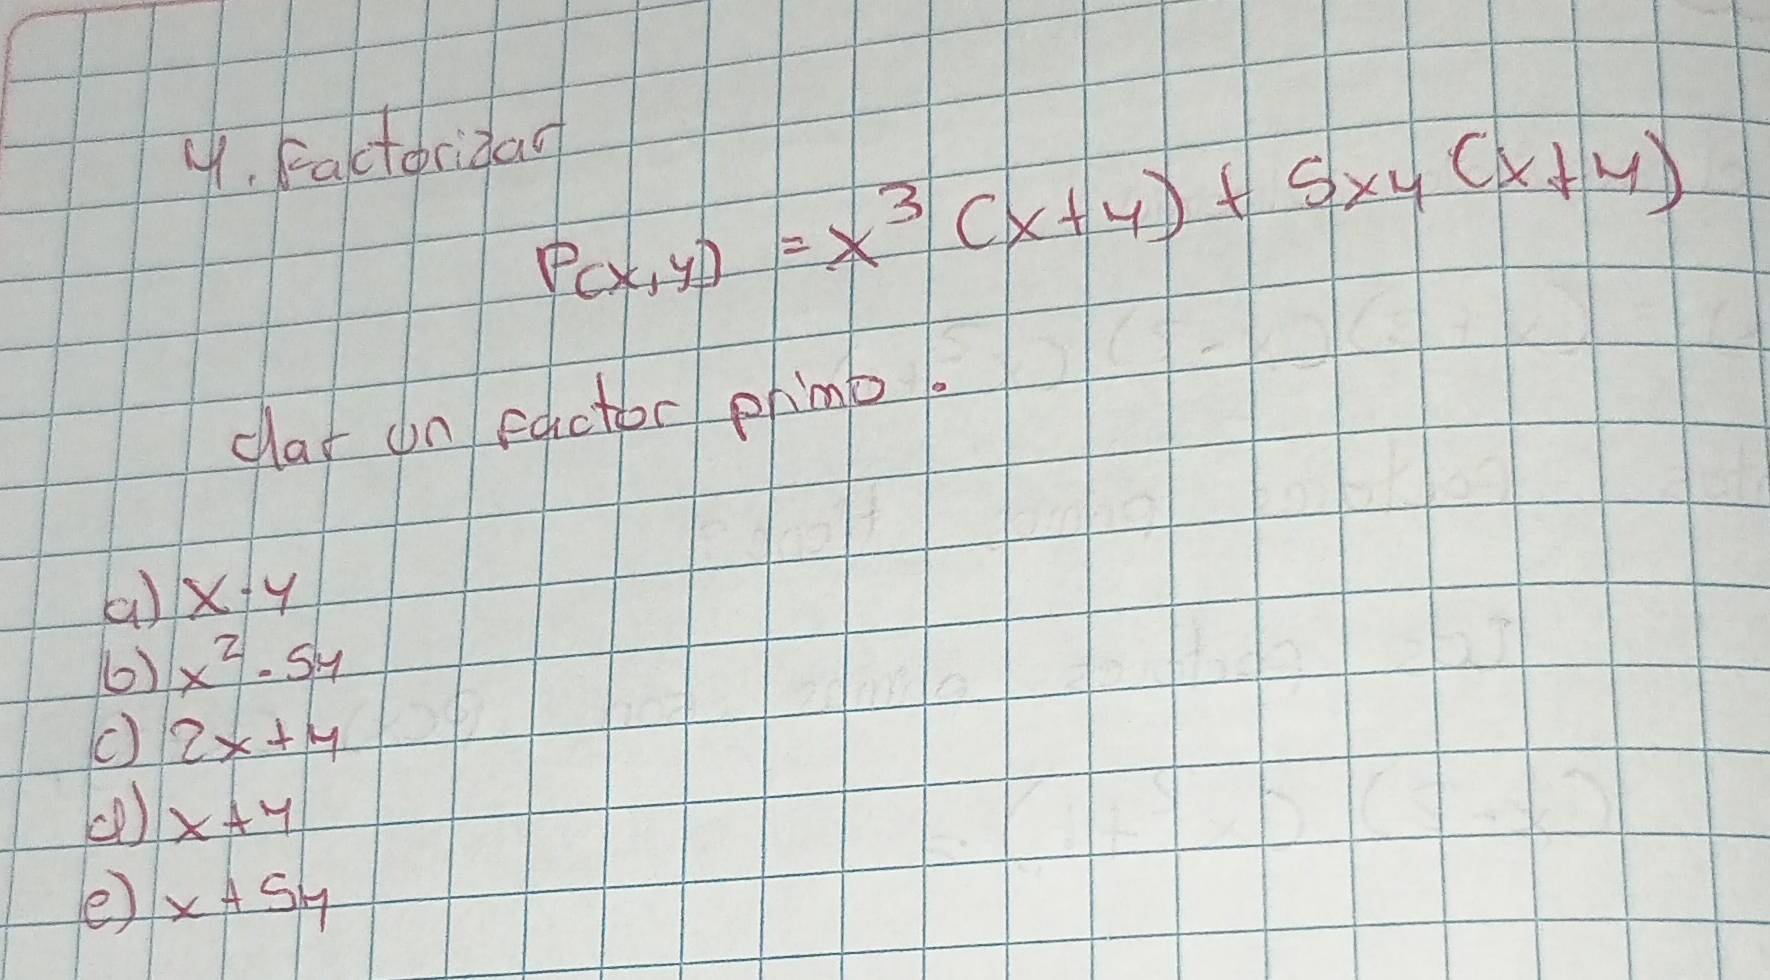 4. Factorizar
P(x,y) = x³ (x+y) + 5xy (x+y)
dar un factor primo.
a) x-y
b) x² - 5y
c) 2x+y
d) x+y
e) x+5y